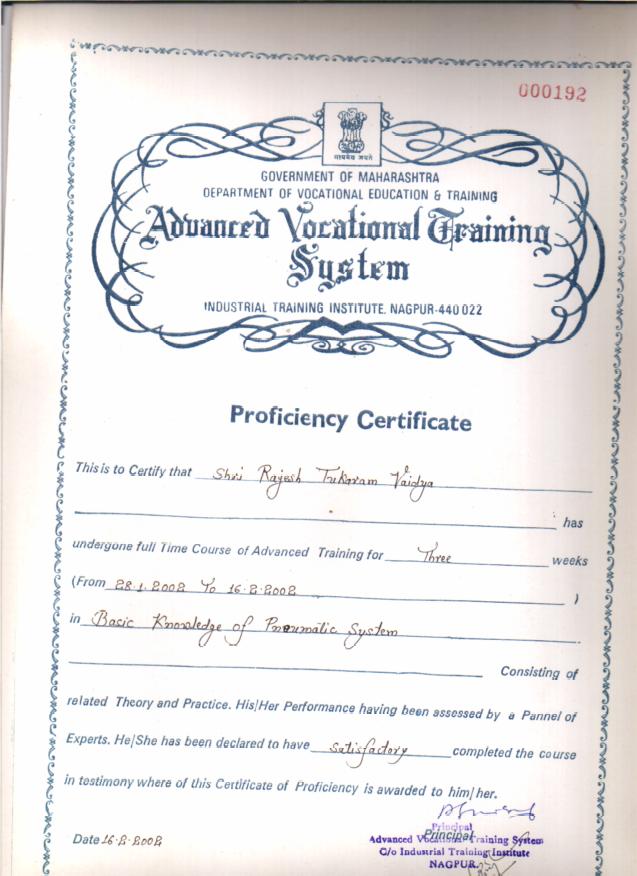 000192
सत्यमेव जयते
GOVERNMENT OF MAHARASHTRA
DEPARTMENT OF VOCATIONAL EDUCATION & TRAINING
Advanced Vocational Training
System
INDUSTRIAL TRAINING INSTITUTE. NAGPUR-440 022
Proficiency Certificate
This is to Certify that Shri Rajesh Tukaram Vaidya
has
undergone full Time Course of Advanced Training for Three weeks
(From 28.1.2002 To 16.2.2002 )
in Basic Knowledge of Pneumatic System
Consisting of
related Theory and Practice. His/Her Performance having been assessed by a Pannel of
Experts. He/She has been declared to have satisfactory completed the course
in testimony where of this Certificate of Proficiency is awarded to him/her.
Principal
Date 16.2.2002 Principal
Advanced Vocational Training System
C/o Industrial Training Institute
NAGPUR.